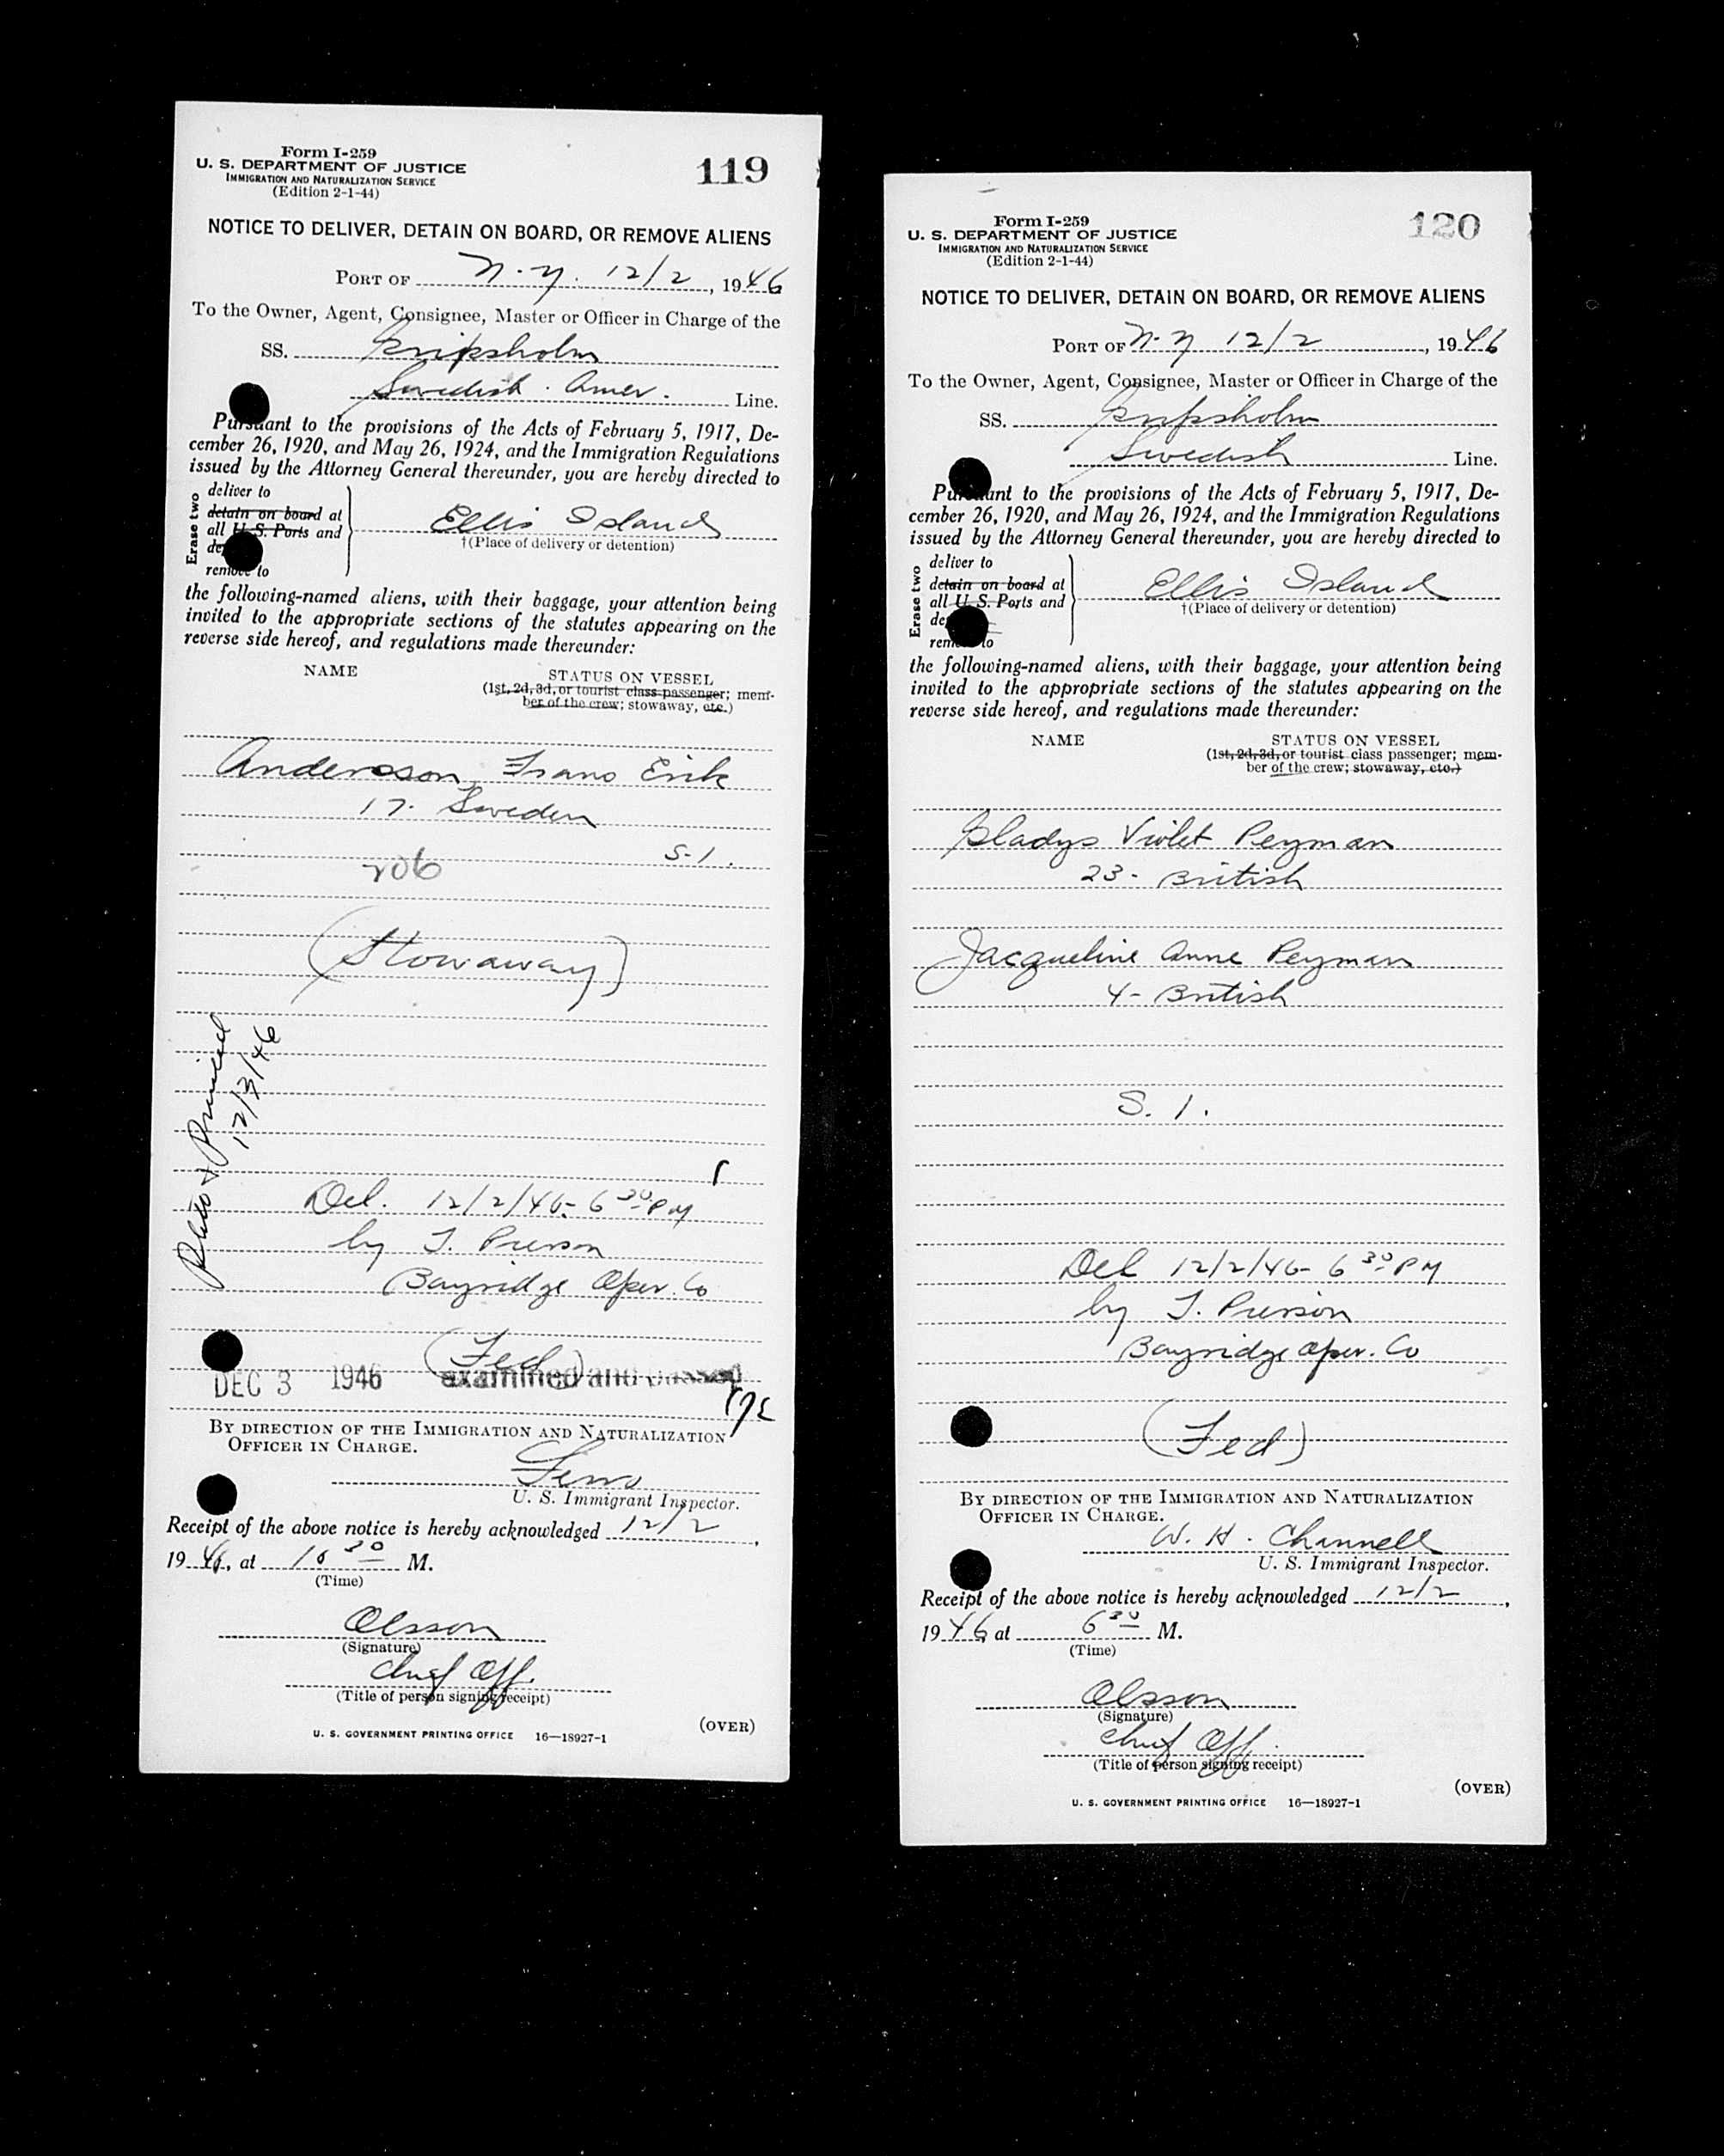 Form I-259
U. S. DEPARTMENT OF JUSTICE
IMMIGRATION AND NATURALIZATION SERVICE
(Edition 2-1-44)
119
NOTICE TO DELIVER, DETAIN ON BOARD, OR REMOVE ALIENS
PORT OF N.Y. 12/2, 1946
To the Owner, Agent, Consignee, Master or Officer in Charge of the
SS. Gripsholm
Swedish. Amer. Line.
Pursuant to the provisions of the Acts of February 5, 1917, De-
cember 26, 1920, and May 26, 1924, and the Immigration Regulations
issued by the Attorney General thereunder, you are hereby directed to
Erase two
deliver to
detain on board at
all U. S. Ports and
remove to
Ellis Island
†(Place of delivery or detention)
the following-named aliens, with their baggage, your attention being
invited to the appropriate sections of the statutes appearing on the
reverse side hereof, and regulations made thereunder:
NAME
STATUS ON VESSEL
(1st, 2d, 3d, or tourist class passenger; mem-
ber of the crew; stowaway, etc.)
Andersson, Frans Erik
17. Sweden
S-1.
206
(Stowaway)
12/3/46
Del. 12/2/46- 6 30 PM
by T. Pierson
Bayridge Oper. Co
(Fed)
DEC 3 1946 examined and passed
BY DIRECTION OF THE IMMIGRATION AND NATURALIZATION
OFFICER IN CHARGE.
U. S. Immigrant Inspector.
Receipt of the above notice is hereby acknowledged 12/2,
1946, at 30 M.
(Time)
Olsson
(Signature)
Chief Off.
(Title of person signing receipt)
(OVER)
U. S. GOVERNMENT PRINTING OFFICE 16—18927-1
Form I-259
U. S. DEPARTMENT OF JUSTICE
IMMIGRATION AND NATURALIZATION SERVICE
(Edition 2-1-44)
120
NOTICE TO DELIVER, DETAIN ON BOARD, OR REMOVE ALIENS
PORT OF N.Y 12/2, 1946
To the Owner, Agent, Consignee, Master or Officer in Charge of the
SS. Gripsholm
Swedish Line.
Pursuant to the provisions of the Acts of February 5, 1917, De-
cember 26, 1920, and May 26, 1924, and the Immigration Regulations
issued by the Attorney General thereunder, you are hereby directed to
Erase two
deliver to
detain on board at
all U. S. Ports and
remove to
Ellis Island
†(Place of delivery or detention)
the following-named aliens, with their baggage, your attention being
invited to the appropriate sections of the statutes appearing on the
reverse side hereof, and regulations made thereunder:
NAME
STATUS ON VESSEL
(1st, 2d, 3d, or tourist class passenger; mem-
ber of the crew; stowaway, etc.)
Gladys Violet Peyman
23- British
Jacqueline Anne Peyman
4- British
S. 1.
Del 12/2/46- 6 30 PM
by T. Pierson
Bayridge Oper. Co
(Fed)
BY DIRECTION OF THE IMMIGRATION AND NATURALIZATION
OFFICER IN CHARGE.
W. H. Channell
U. S. Immigrant Inspector.
Receipt of the above notice is hereby acknowledged 12/2,
1946 at 6 30 M.
(Time)
Olsson
(Signature)
Chief Off.
(Title of person signing receipt)
(OVER)
U. S. GOVERNMENT PRINTING OFFICE 16—18927-1